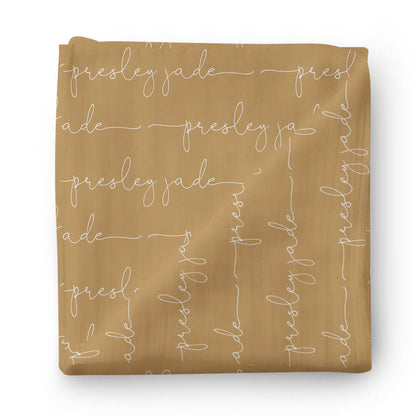 presley jade presl
ade presley ja
presley jade
ade presl
presl
ade
presley ja
ade
presley jade
presley jade
ade